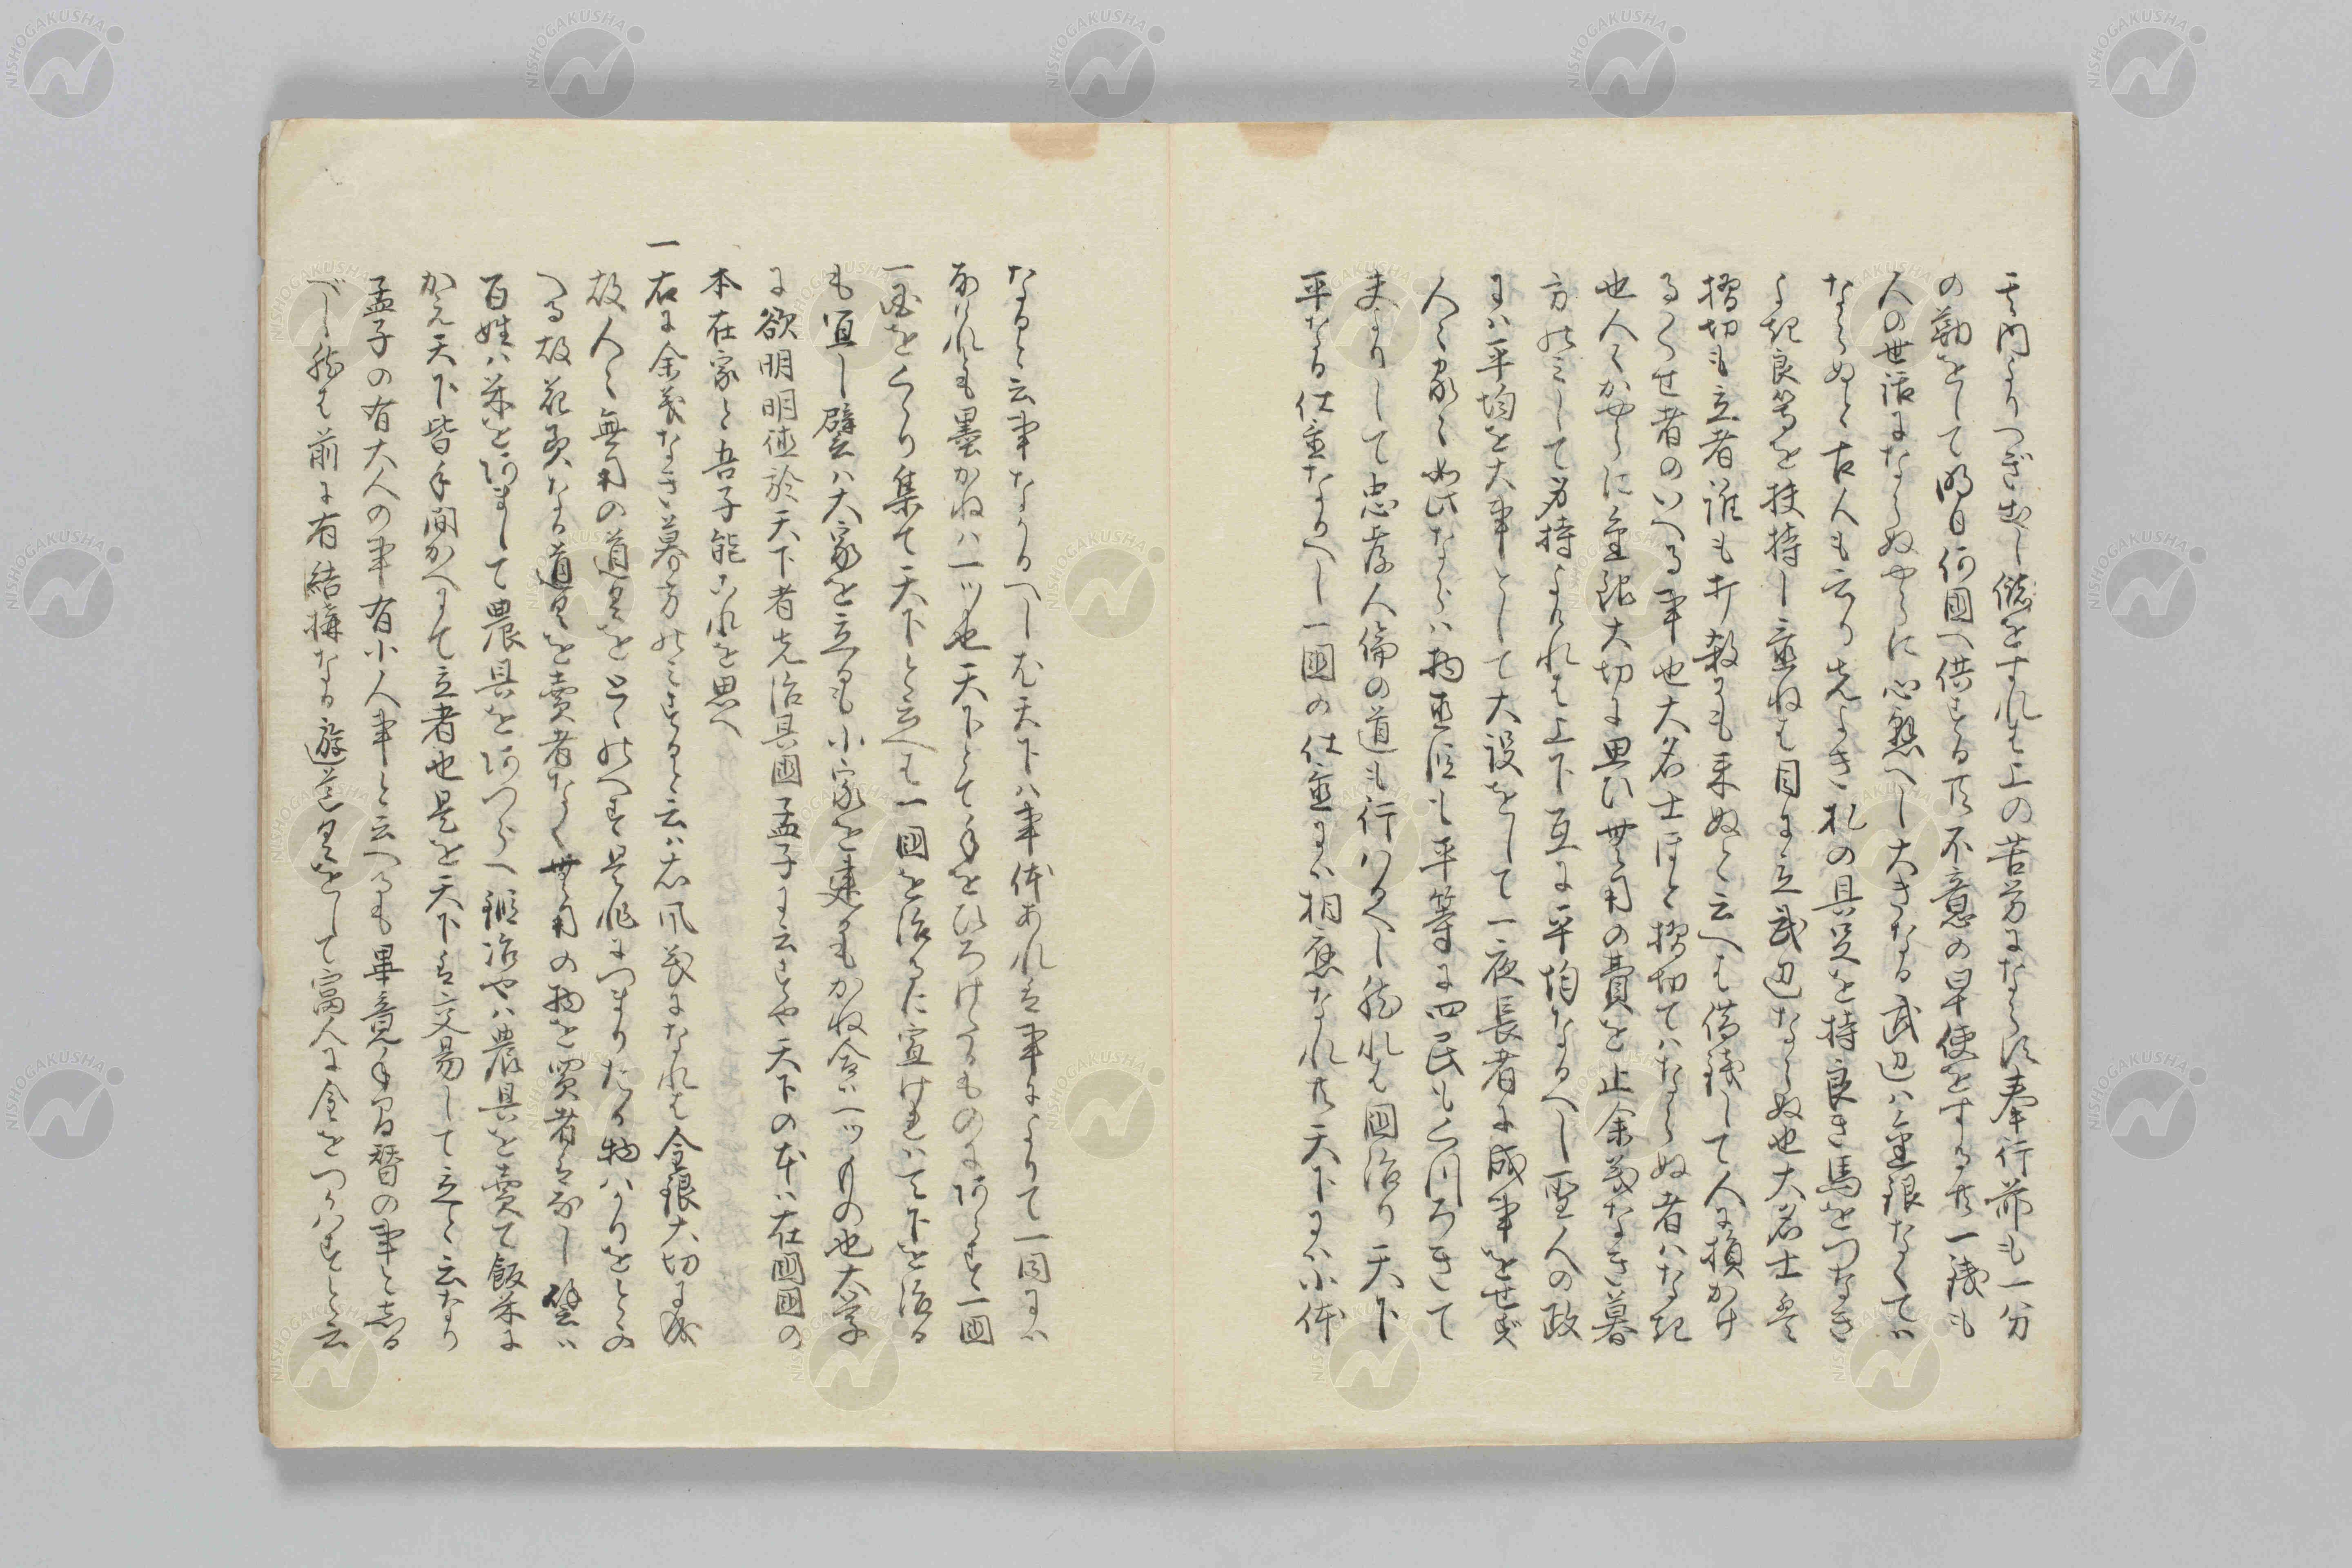 其内よりつぎ出し償をすれは上の苦労にならす奉行荷も一分
の勤をして明日何国へ供する共不意の早使をする共一銭も
人の世話にならぬやうに心懸へし大きなる武辺ハ金銀なくてハ
ならぬと古人も云り先よき札の具足を持良き馬をつなき
よき良等を扶持し重ねは目に立武辺ならぬ也大名士是
摺切も立者誰も打殺ても来ぬと云へは借銭して人に損かけ
るくせ者のいへる事也大名士ほと摺切てハならぬ者ハなき
也人々かやうに金銀大切に思ひ無用の費を止余義なき暮
方のミして身持よけれは上下互に平均なるへし聖人の政
にハ平均を大事として大設をして一夜長者に成事をせす
人々家々如此ならハ物重宝も平等に四民もくつろきて
夫よりして忠孝人倫の道も行ハるへし然れは国治り天下
平なる仕置なるへし一国の仕置にハ相応なれ共天下にハ小体
なると云事なるへし尤天下ハ事体あれは事によりて一同にハ
あらされとも墨かねハ一ツ也天下とて手をひろけたるものにあらす一国
一国をくゝり集て天下と云へは一国を治るに宜けれハ天下を治る
も宜し譬ハ大家を立るも小家を建るもかね合ハ一ツもの也大学
に欲明明徳於天下者先治其国孟子に云すや天下の本ハ在国国の
本在家と吾子能これを思へ
一右に余義なき暮方のミすると云ハ右風義になれは金銀大切に成
故人々無用の道具をとゝのへす是非につまりたる物ハかりをとゝの
へる故花美なる道具を売者なく無用の物を買者もなし譬ハ
百姓ハ米をあまして農具をあつらへ鍛冶やハ農具を売て飯米に
かえ天下皆手間かへにて立者也是を天下は交易して立と云なり
孟子の有大人の事有小人事と云へるも畢竟手間替の事と志る
べし然は前に有結構なる遊道具をして富人に金をつかハすと云